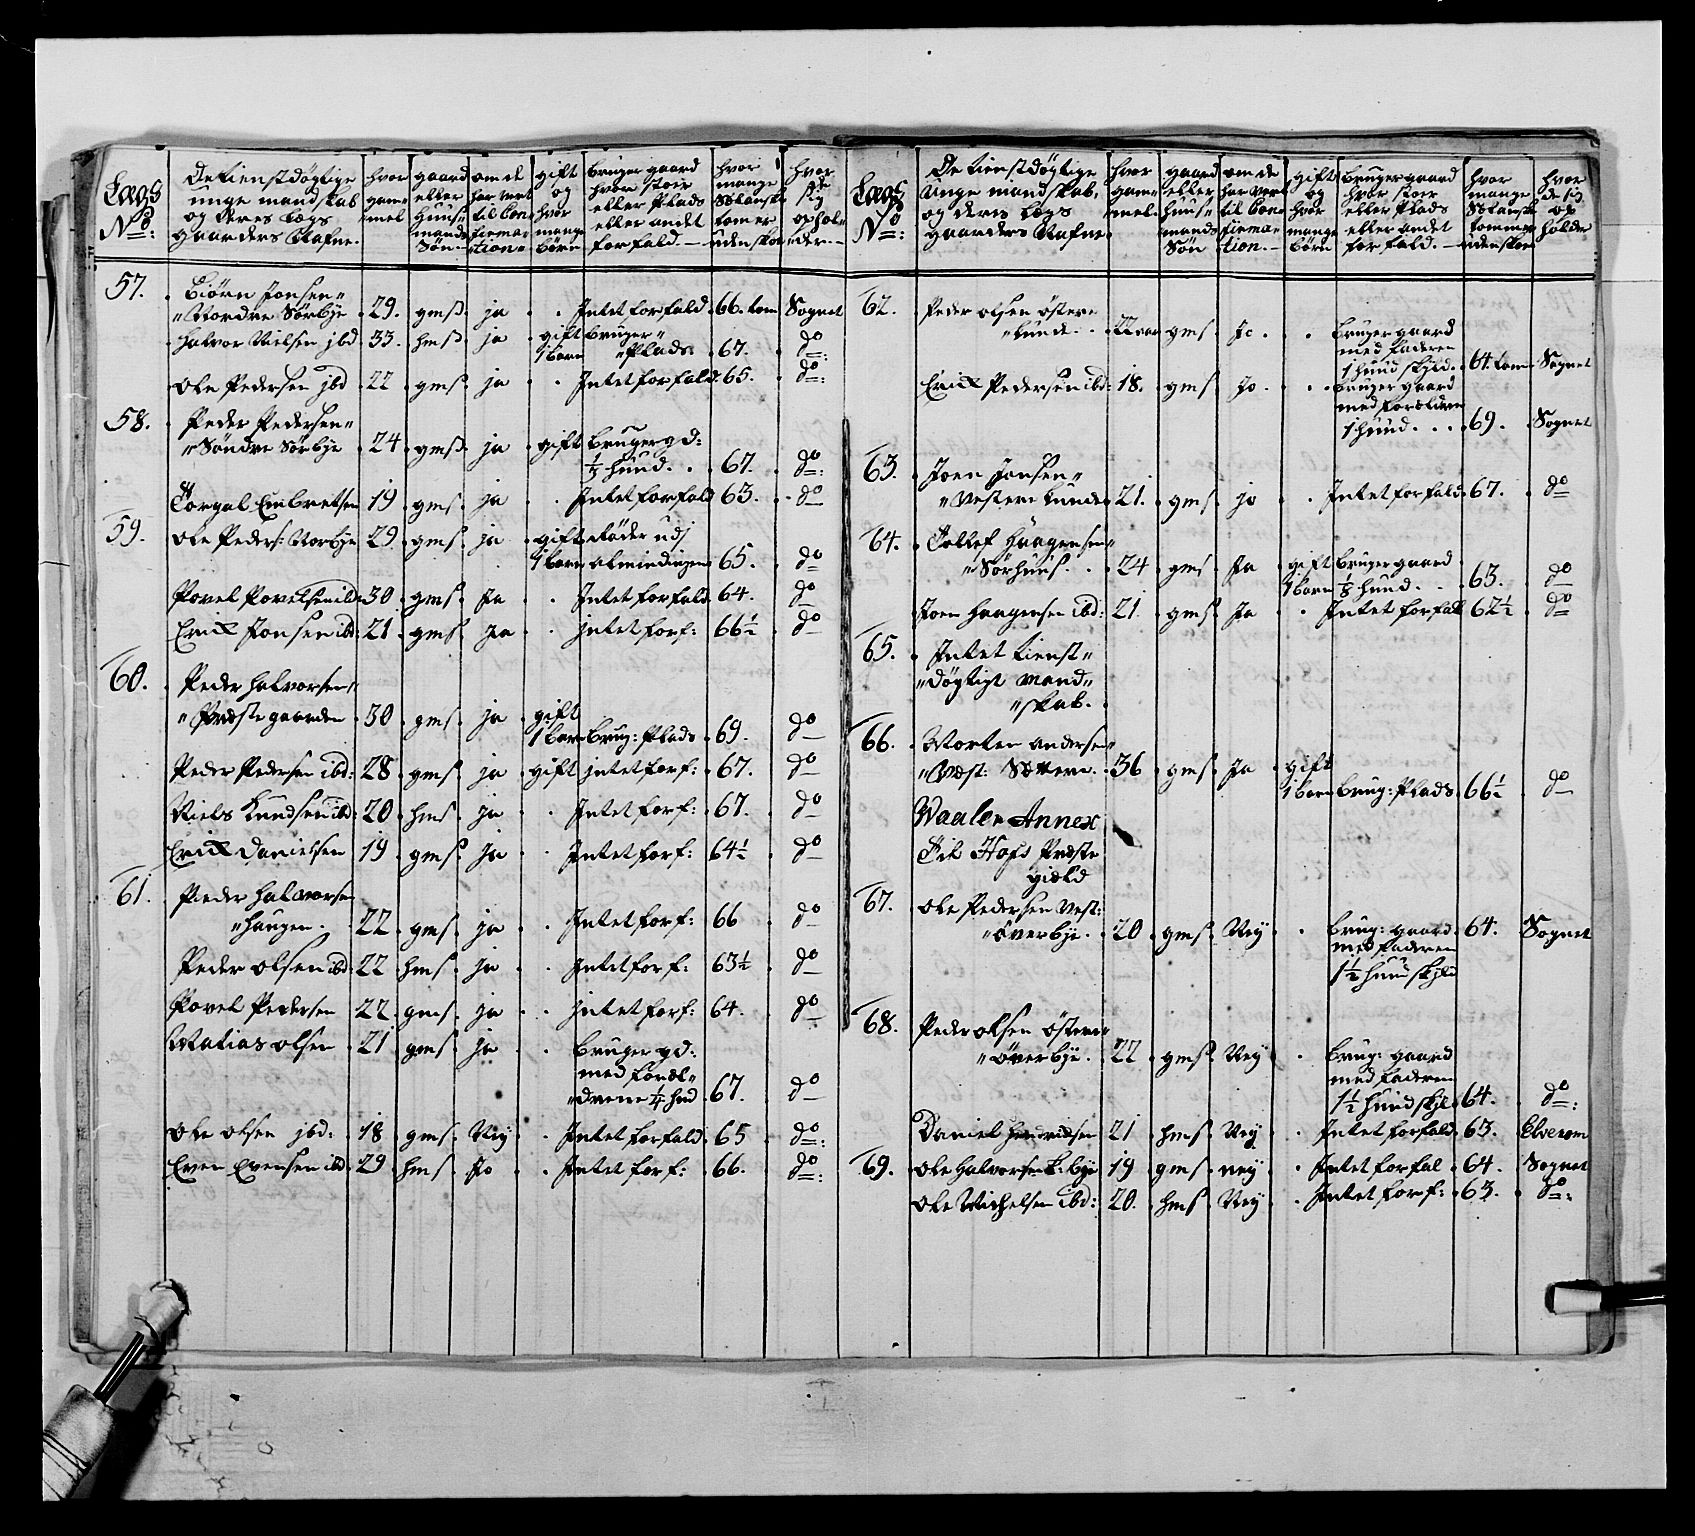 Lægs No: | De tienstdøgtige unge mandskab og deres Lægs gaarders Nafne. | hvor gammel | gaard eller huusmands Søn | om de har vert til Confirmation | gift og hvor mange børn | bruger gaard hvor stoer eller Plads eller andet forfald. | hvor mange Siælansk tommer uden skoe | hvor de sig opholder
57. Biørn Jonsen
Nordre Sørbye 29. gms. ja Intet forfald 66. tom Sognet
Halvor Nielsen jbd 33. hms. ja gift 1 barn bruger Plads 67. do
Ole Pedersen jbd 22 gms. ja Intet forfald 65. do
58. Peder Pedersen
Søndre Sørbye 24 gms. ja gift bruger gd: ½ hund. 67. do
Torgal Embretsen 19 gms. ja Intet forfald 63. do
59. Ole Peders: Norbye 29. gms. ja gift 1 barn Røder udj almindingen 65. do
Povel Povelsen ibd 30 gms. Ja Intet forfald 64. do
Erich Jonsen ibd: 21 gms. Ja jntet forf: 66½ do
60. Peder Halvorsen
Præstegaarden 30 gms. ja gift 1 barn brug: Plads 69. do
Peder Pedersen ibd: 28 gms. ja gift jntet forf: 67. do
Niels Knudsen ibd: 20 hms. ja Intet forf: 67. do
Erich Danielsen 19 gms. Ja Intet forf: 64½ do
61. Peder Halvorsen
Haugen. 22 gms. ja Intet forf: 66 do
Peder Olsen ibd: 22 hms. ja Intet forf: 63½ do
Povel Pedersen 22 gms. ja jntet forf: 64. do
Matias Olsen 21 gms. ja bruger gd: med forældrene ¼ hud 67. do
Ole Olsen jbd: 18 gms. Ney Intet forfald 65 do
Even Evensen ibd 29 hms. Jo Intet forf: 66. do
Lægs No: | De tienstdøgtige unge mandskab, og deres Lægs gaarders Nafne | hvor gammel | gaard eller huusmands Søn | om de har vert til Confirmation. | gift og hvor mange børn | bruger gaard hvor stoer eller Plads eller andet forfald. | hvor mange Siælansk tommer uden skoe | hvor de sig opholder
62. Peder Olsen Østere
Lunde. 22 aar gms. Jo. bruger gaard med faderen 1 hund skyld. 64. tom Sognet
Erich Pedersen ibd: 18. gms Jo. bruger gaard med forældrene 1 hund. 69. Sognet
63. Joen Jonsen
Vestere Lunde 21. gms. jo Intet forfald 67. do
64. Tollef Haagensen
Sørhuus. 24 gms. Ja gift 1 barn bruger gaard ½ hund. 63. do
Joen Haagensen ibd: 21 gms. Ja Intet forfald 62½ do
65. Intet tienst
døgtigt mand
skab.
66. Morten Andersen
Væst: Sætteren. 36 gms. Ja gift 1 barn brug: Plads 66½ do
Waaler Annex
Til Hofs Præste
gield
67. Ole Pedersen Vest:
Øverbye. 20 gms. Ney brug: gaard med faderen 1½ huud skyld 64. Sognet
68. Peder Olsen Østere
Øverbye. 22 gms. Ney brug: gaard med faderen 1½ hundskyld 64. do
Daniel Hendrichsen 21 hms. Ney Intet forfald 63. Elverom
69. Ole Halvorsen bye 19 gms. ney Intet forfal 64. Sognet
Ole Michelsen ibd: 20. hms. Ney Intet forf: 63. do